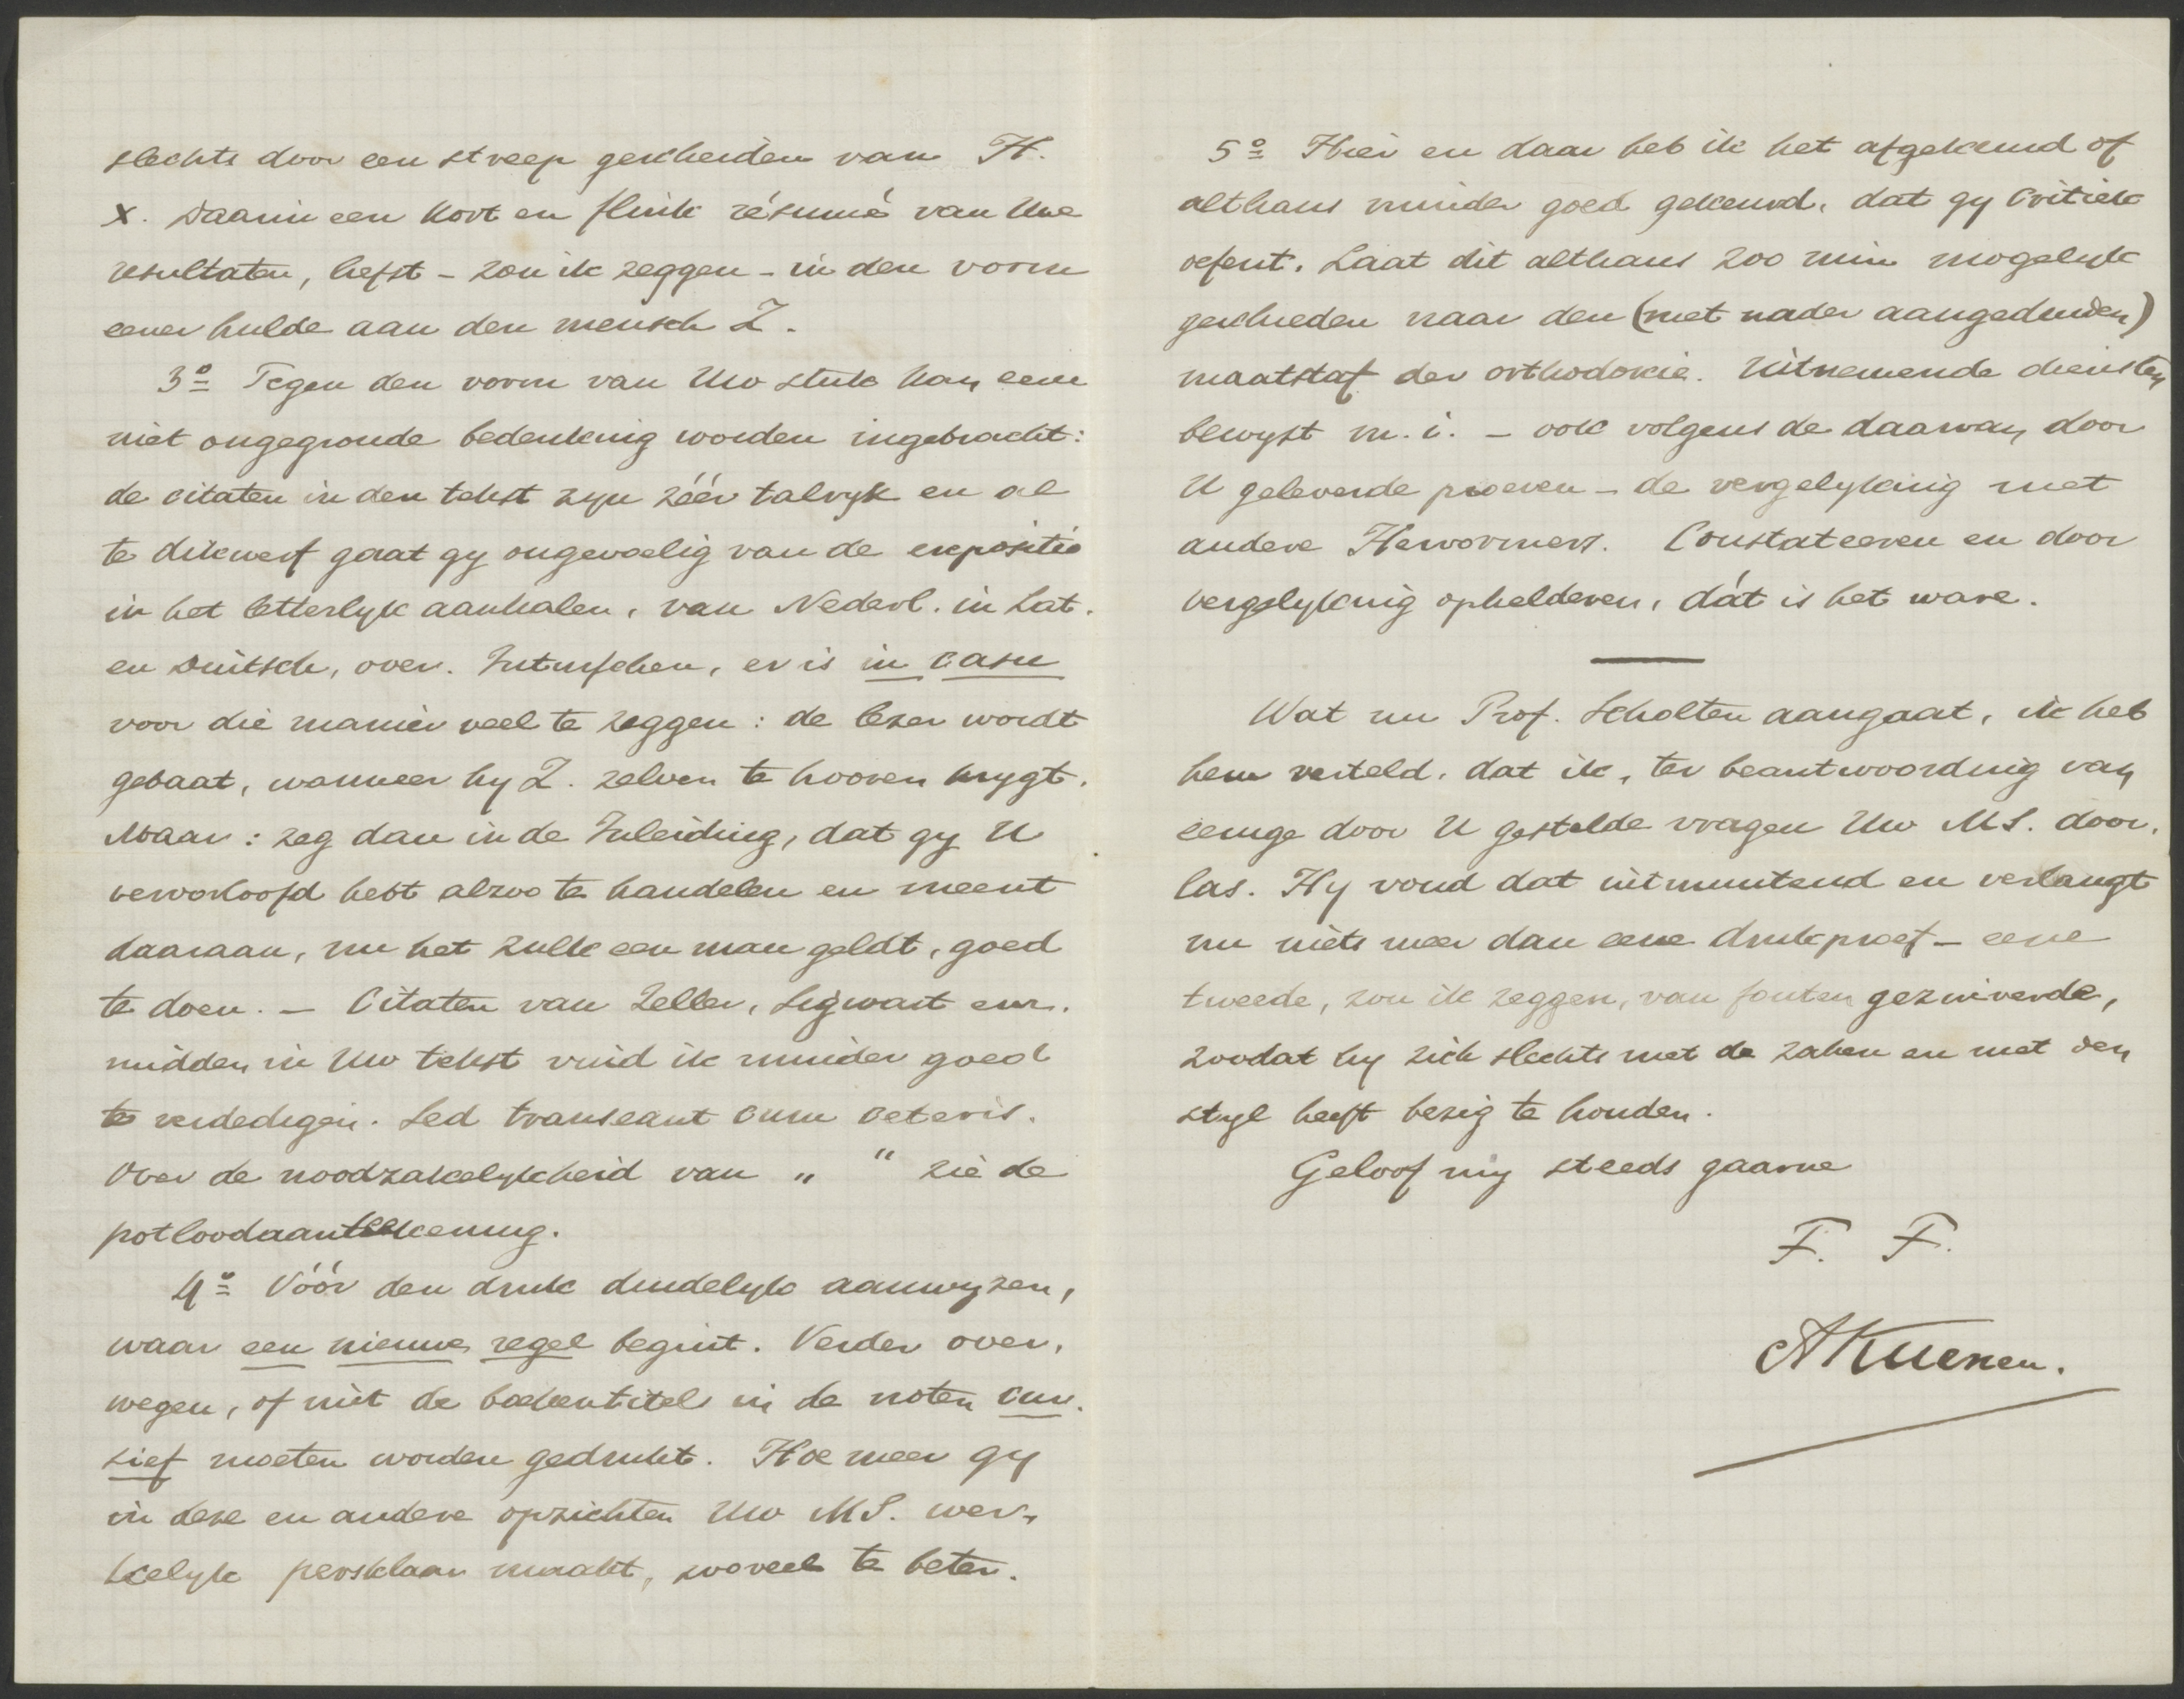 slechts door een streep gescheiden van H.
X. Daarin een kort en flink résumé van Uwe
resultaten, liefst - zou ik zeggen - in den vorm
eener hulde aan den mensch Z.
3º Tegen den vorm van Uw stuk kan eene
niet ongegronde bedenking worden ingebracht:
de citaten in den tekst zyn zéér talryk en al
te dikwerf gaat gy ongevoelig van de expositie
in het letterlyk aanhalen, van Nederl. in Lat.
en Duitsch, over. Intusschen, er is in casu
voor die manier veel te zeggen: de lezer wordt
gebaat, wanneer hy Z. zelven te hooren krygt.
Maar: zeg dan in de Inleiding, dat gy U
veroorloofd hebt alzoo te handelen en meent
daaraan, nu het zulk een man geldt, goed
te doen. - Citaten van Zeller, Sigwart enz.
midden in Uw tekst vind ik minder goed
te verdedigen. Sed transeant cum ceteris.
Over de noodzakelykheid van „ “ zie de
potloodaanteekening.
4º Vóór den druk duidelyk aanwyzen,
waar een nieuwe regel begint. Verder over,
wegen, of niet de boekentitels in de noten cur.
sief moeten worden gedrukt. Hoe meer gy
in deze en andere opzichten Uw MS. wer,
kelyk persklaar maakt, zooveel te beter.
5º Hier en daar heb ik het afgekeurd of
althans minder goed gekeurd, dat gy Critiek
oefent. Laat dit althans zoo min mogelyk
geschieden naar den (niet nader aangeduiden)
maatstaf der orthodoxie. Uitnemende diensten
bewyst m. i. - ook volgens de daarvan door
U geleverde proeven - de vergelyking met
andere Hervormers. Constateeren en door
vergelyking ophelderen, dát is het ware.
Wat nu Prof. Scholten aangaat, ik heb
hem verteld, dat ik, ter beantwoording van
eenige door U gestelde vragen Uw MS. door,
las. Hy vond dat uitmuntend en verlangt
nu niets meer dan eene drukproef - eene
tweede, zou ik zeggen, van fouten gezuiverde,
zoodat hy zich slechts met de zaken en met den
styl heeft bezig te houden.
Geloof my steeds gaarne
F. F.
AKuenen.